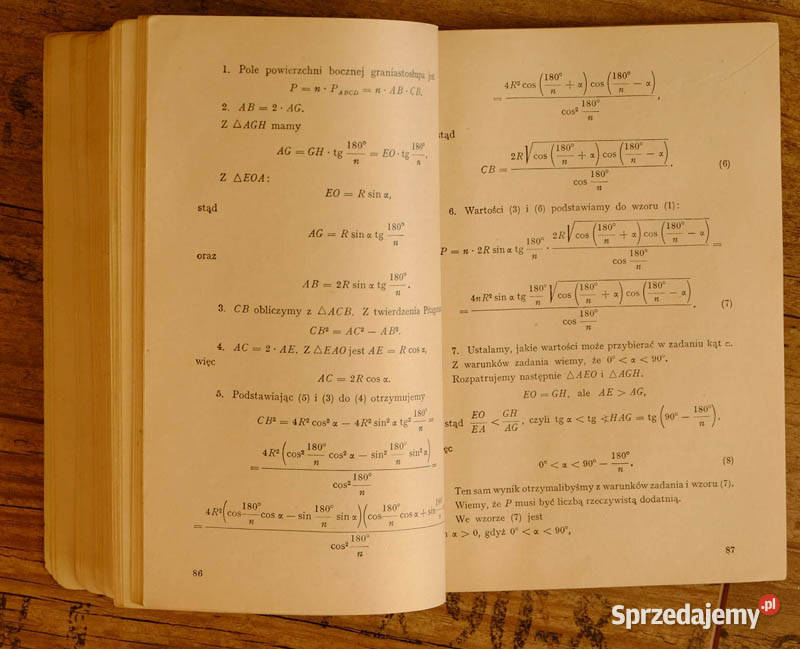 1. Pole powierzchni bocznej graniastosłupa jest
P = n · P_ABCD = n · AB · CB.
2. AB = 2 · AG.
Z △AGH mamy
AG = GH · tg 180°/n = EO · tg 180°/n,
Z △EOA:
EO = R sin α,
stąd
AG = R sin α tg 180°/n
oraz
AB = 2R sin α tg 180°/n.
3. CB obliczymy z △ACB. Z twierdzenia
CB² = AC² − AB².
4. AC = 2 · AE. Z △EAO jest AE = R cos α,
więc
AC = 2R cos α.
5. Podstawiając (5) i (3) do (4) otrzymujemy
CB² = 4R² cos² α − 4R² sin² α tg² 180°/n =
= 4R² (cos² 180°/n cos² α − sin² 180°/n sin² α) / cos² 180°/n =
= 4R² (cos 180°/n cos α − sin 180°/n sin α)(cos 180°/n cos α + sin 180°/n / cos² 180°/n
86
= 4R² cos (180°/n + α) cos (180°/n − α) / cos² 180°/n,
stąd
CB = 2R √cos (180°/n + α) cos (180°/n − α) / cos 180°/n. (6)
6. Wartości (3) i (6) podstawiamy do wzoru (1):
P = n · 2R sin α tg 180°/n · 2R √cos (180°/n + α) cos (180°/n − α) / cos 180°/n =
= 4nR² sin α tg 180°/n √cos (180°/n + α) cos (180°/n − α) / cos 180°/n. (7)
7. Ustalamy, jakie wartości może przybierać w zadaniu kąt α.
Z warunków zadania wiemy, że 0° < α < 90°.
Rozpatrujemy następnie △AEO i △AGH.
EO = GH, ale AE > AG,
stąd EO/EA < GH/AG, czyli tg α < tg ∢HAG = tg (90° − 180°/n),
ęc
0° < α < 90° − 180°/n. (8)
Ten sam wynik otrzymalibyśmy z warunków zadania i wzoru (7).
Wiemy, że P musi być liczbą rzeczywistą dodatnią.
We wzorze (7) jest
α > 0, gdyż 0° < α < 90°,
87
Sprzedajemy.pl